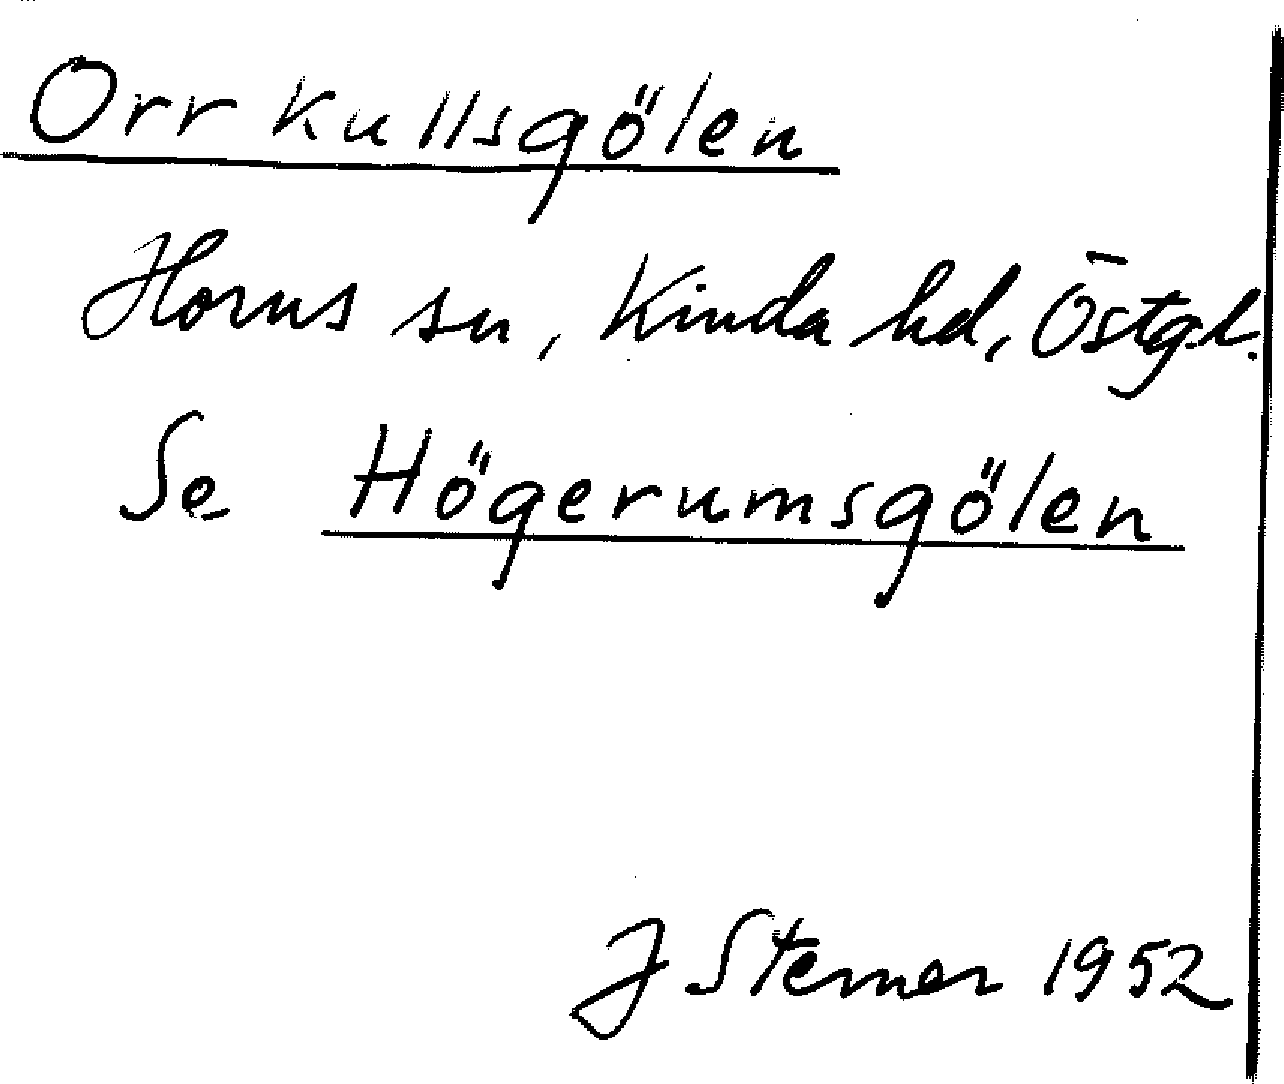 Orrkullsgölen
Horns sn, Kinda hd, Östgl.
Se Högerumsgölen
J Sterner 1952